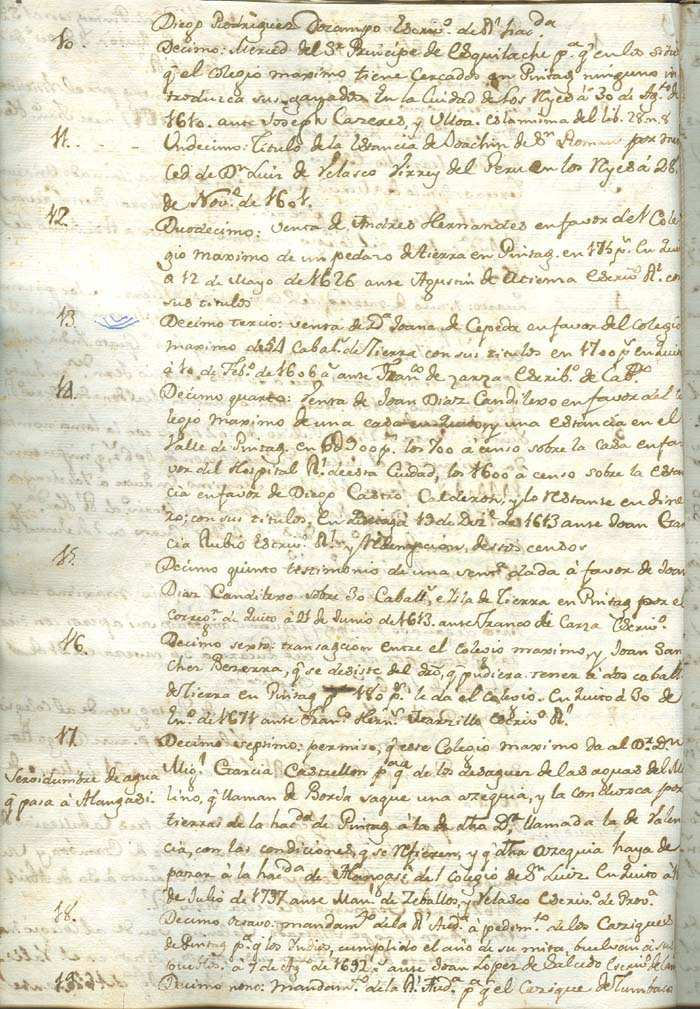 Diego Rodriguez Docampo Escriv.o de R.l haz.da
10. Decimo: Merced del S.r Principe de Esquilache p.a q.e en los sitios
q.e el Colegio maximo tiene Cercados en Pintag ninguno in
trodusca sus ganados En la Ciudad de los Reyes á 30 de Ag.to de
1610. ante Joseph Cazeres, y Ulloa. es la misma del lib. 28. n. 8
11. Undecimo: Titulo de la Estancia de Joachin de S.n Roman por mer
ced de D.n Luiz de Velasco Virrey del Peru en los Reyes á 28.
de Nov.e de 1601.
12. Duodecimo: Venta de Andres Hernandes en favor del Cole
gio maximo de un pedazo de tierra en Pintag. en 175 p.s En Quito
a 12 de Mayo de 1626 ante Agustin de Atiensa Escriv.o R.l con
sus titulos
13. Decimo tercio: venta de D.a Joana de Cepeda en favor del Colegio
maximo de 54 Caball.s de Tierra con sus titulos en 1700 p.s en Quito
á 10 de Feb.o de 1606 a.s ante Fran.co de zarza Escrib.o de Cab.do
14. Decimo quarto: Venta de Joan Diaz Candilexo en favor del Co
legio maximo de una casa en Quito, y una estancia en el
Valle de Pintag. en 900 p.s los 700 á censo sobre la casa en fa
vor del Hospital R.l de esta Ciudad, los 1600 á censo sobre la estan
cia en favor de Diego Castro Calderon, y lo restante en dine
ro; con sus titulos, En 19 de Diz.e de 1613 ante Joan Gar
cia Rubio Escriv.o R.l y Redempcion de estos censos
15. Decimo quinto testimonio de una sent.a dada á favor de Joan
Diaz Candilexo sobre 30 Caball.s, e Isla de Tierra en Pintag por el
Correg.r de Quito á 21 de Junio de 1613. ante Franco de Carza Escriv.o
16. Decimo sexto: transaccion entre el colegio maximo, y Joan San
chez Bezerra, q.e se desiste del dro, q.e pudiera tener á dos caball.s
de Tierra en Pintag p.r 180 p.s le da el colegio. En Quito á 30 de
En.o de 1671 ante Fran.co Hern.s Jaramillo Escriv.o R.l
17. Decimo septimo: permiso, q.e este Colegio maximo da al D.r D.n
Mig.l Garcia Castrellon p.a q.e de los desagues de las aguas del Mo
Servidumbre de agua
q.e pasa á Alangasi.
lino, q.e llaman de Borda saque una azequia, y la conduzca por
tierras de la haz.da de Pintag á la de dho D.r llamada la de Valen
cia, con las condiciones, q.e se refieren, y q.e dha azequia haya de
pasar á la haz.da de Alangasi del Colegio de S.n Luiz. En Quito á
de Julio de 1737 ante Man.l de Zeballos, y Velasco Escriv.o de Prov.a
18. Decimo octavo: mandam.to de la R.l Aud.a á pedim.to de los Caziques
de Pintag p.a q.e los Indios, cumplido el año de su mita, buelvan á sus
pueblos. á 7 de Ag.to de 1692 a.s ante Joan Lopez de Salcedo Escriv.o de Cam
19. Decimo nono: Mandam.to de la R.l Aud.a p.a q.e el Cazique de Tumbaco